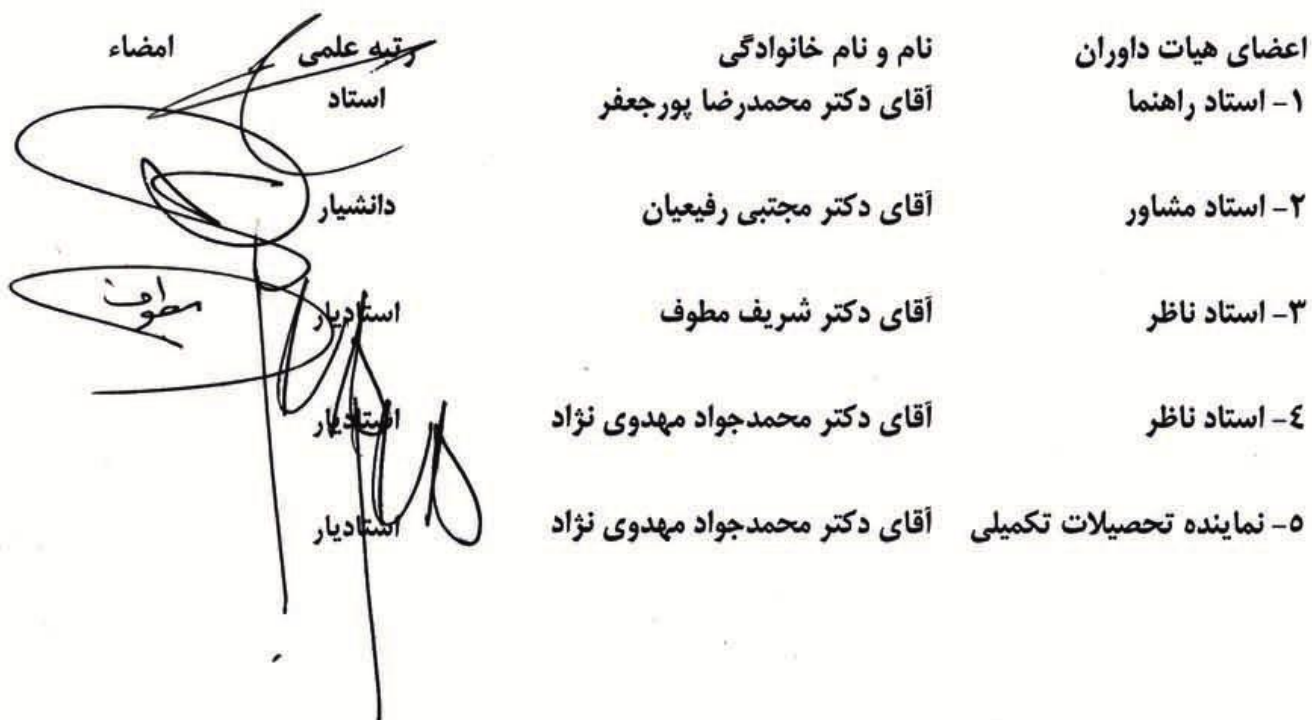 اعضای هیات داوران نام و نام خانوادگی رتبه علمی امضاء
۱- استاد راهنما آقای دکتر محمدرضا پورجعفر استاد
۲- استاد مشاور آقای دکتر مجتبی رفیعیان دانشیار
۳- استاد ناظر آقای دکتر شریف مطوف استادیار
مطوف
٤- استاد ناظر آقای دکتر محمدجواد مهدوی نژاد استادیار
٥- نماینده تحصیلات تکمیلی آقای دکتر محمدجواد مهدوی نژاد استادیار